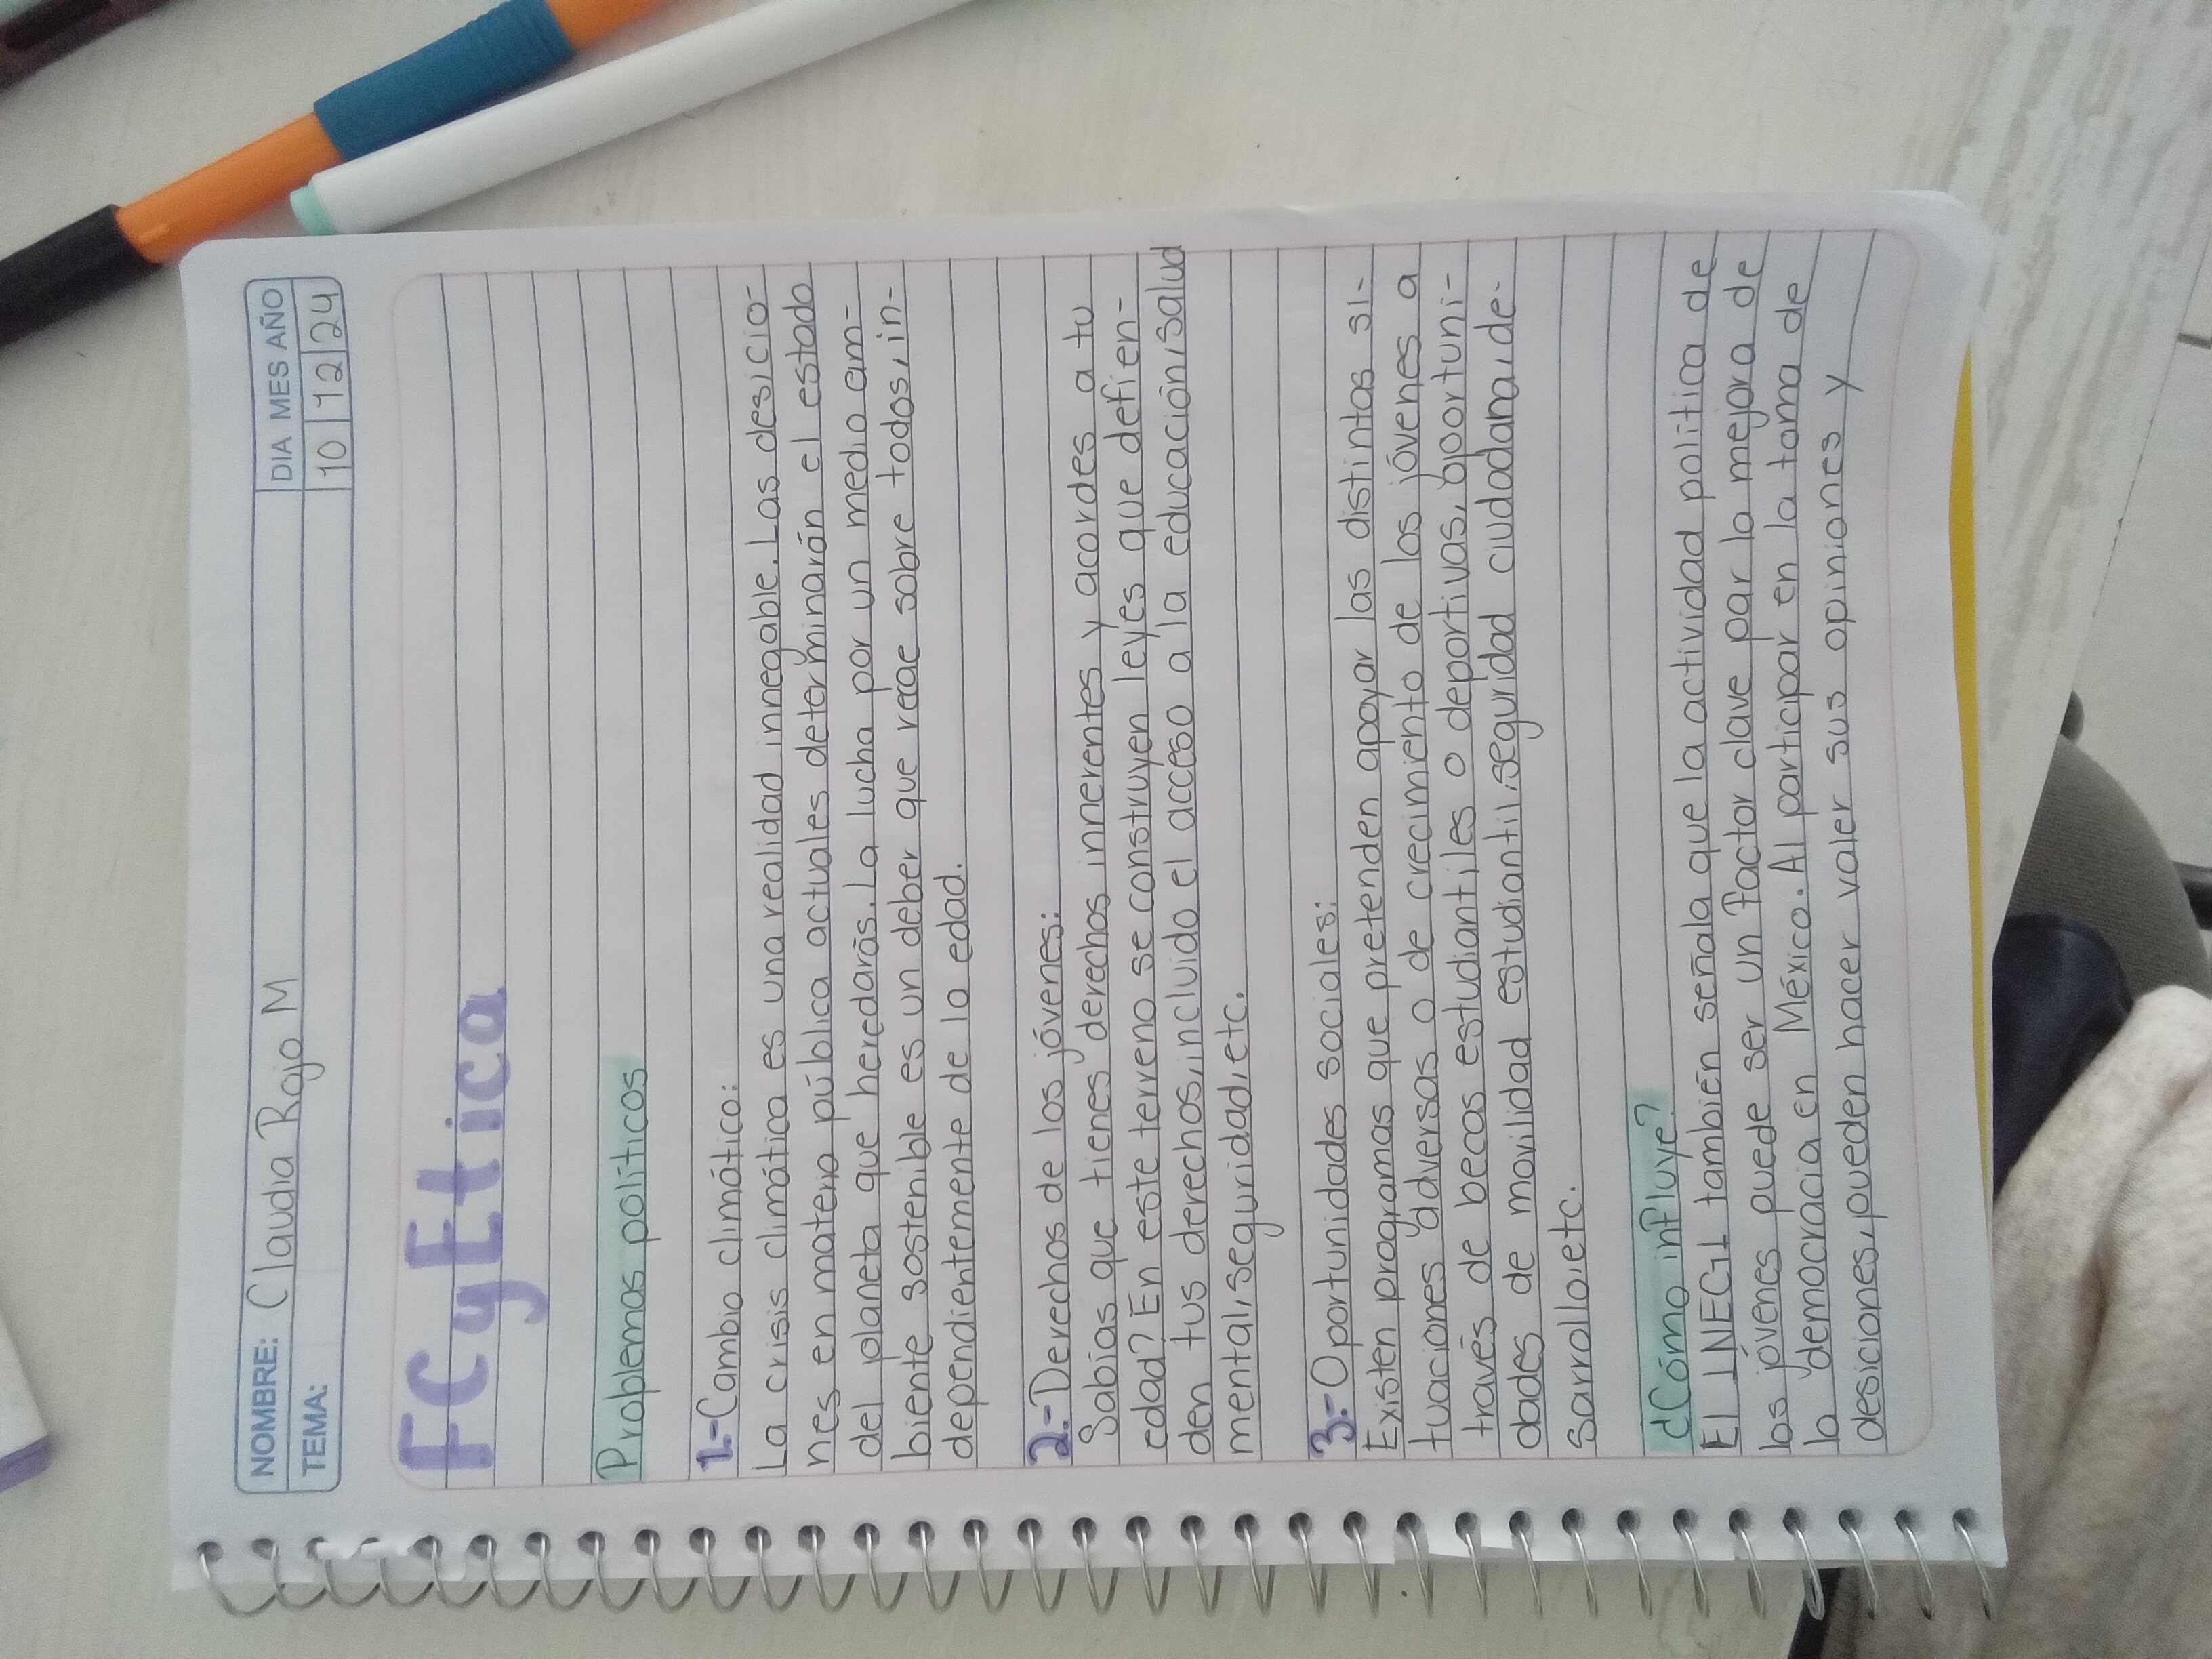 NOMBRE: Claudia Rojo M
DIA MES AÑO
TEMA:
10 12 24
FCyEtica
Problemas políticos
1.-Cambio climático:
La crisis climática es una realidad innegable. Las desicio-
nes en materia pública actuales determinarán el estado
del planeta que heredarás. La lucha por un medio am-
biente sostenible es un deber que recae sobre todos, in-
dependientemente de la edad.
2.-Derechos de los jóvenes:
Sabías que tienes derechos innerentes y acordes a tu
edad? En este terreno se construyen leyes que defien-
den tus derechos, incluido el acceso a la educación, salud
mental, seguridad, etc.
3.-Oportunidades sociales:
Existen programas que pretenden apoyar las distintas si-
tuaciones adversas o de crecimiento de los jóvenes a
través de becas estudiantiles o deportivas, oportuni-
dades de movilidad estudiantil, seguridad ciudadana, de-
sarrollo, etc.
¿Cómo influye?
El INEGI también señala que la actividad política de
los jóvenes puede ser un factor clave par la mejora de
la democracia en México. Al participar en la toma de
desiciones, pueden hacer valer sus opiniones y